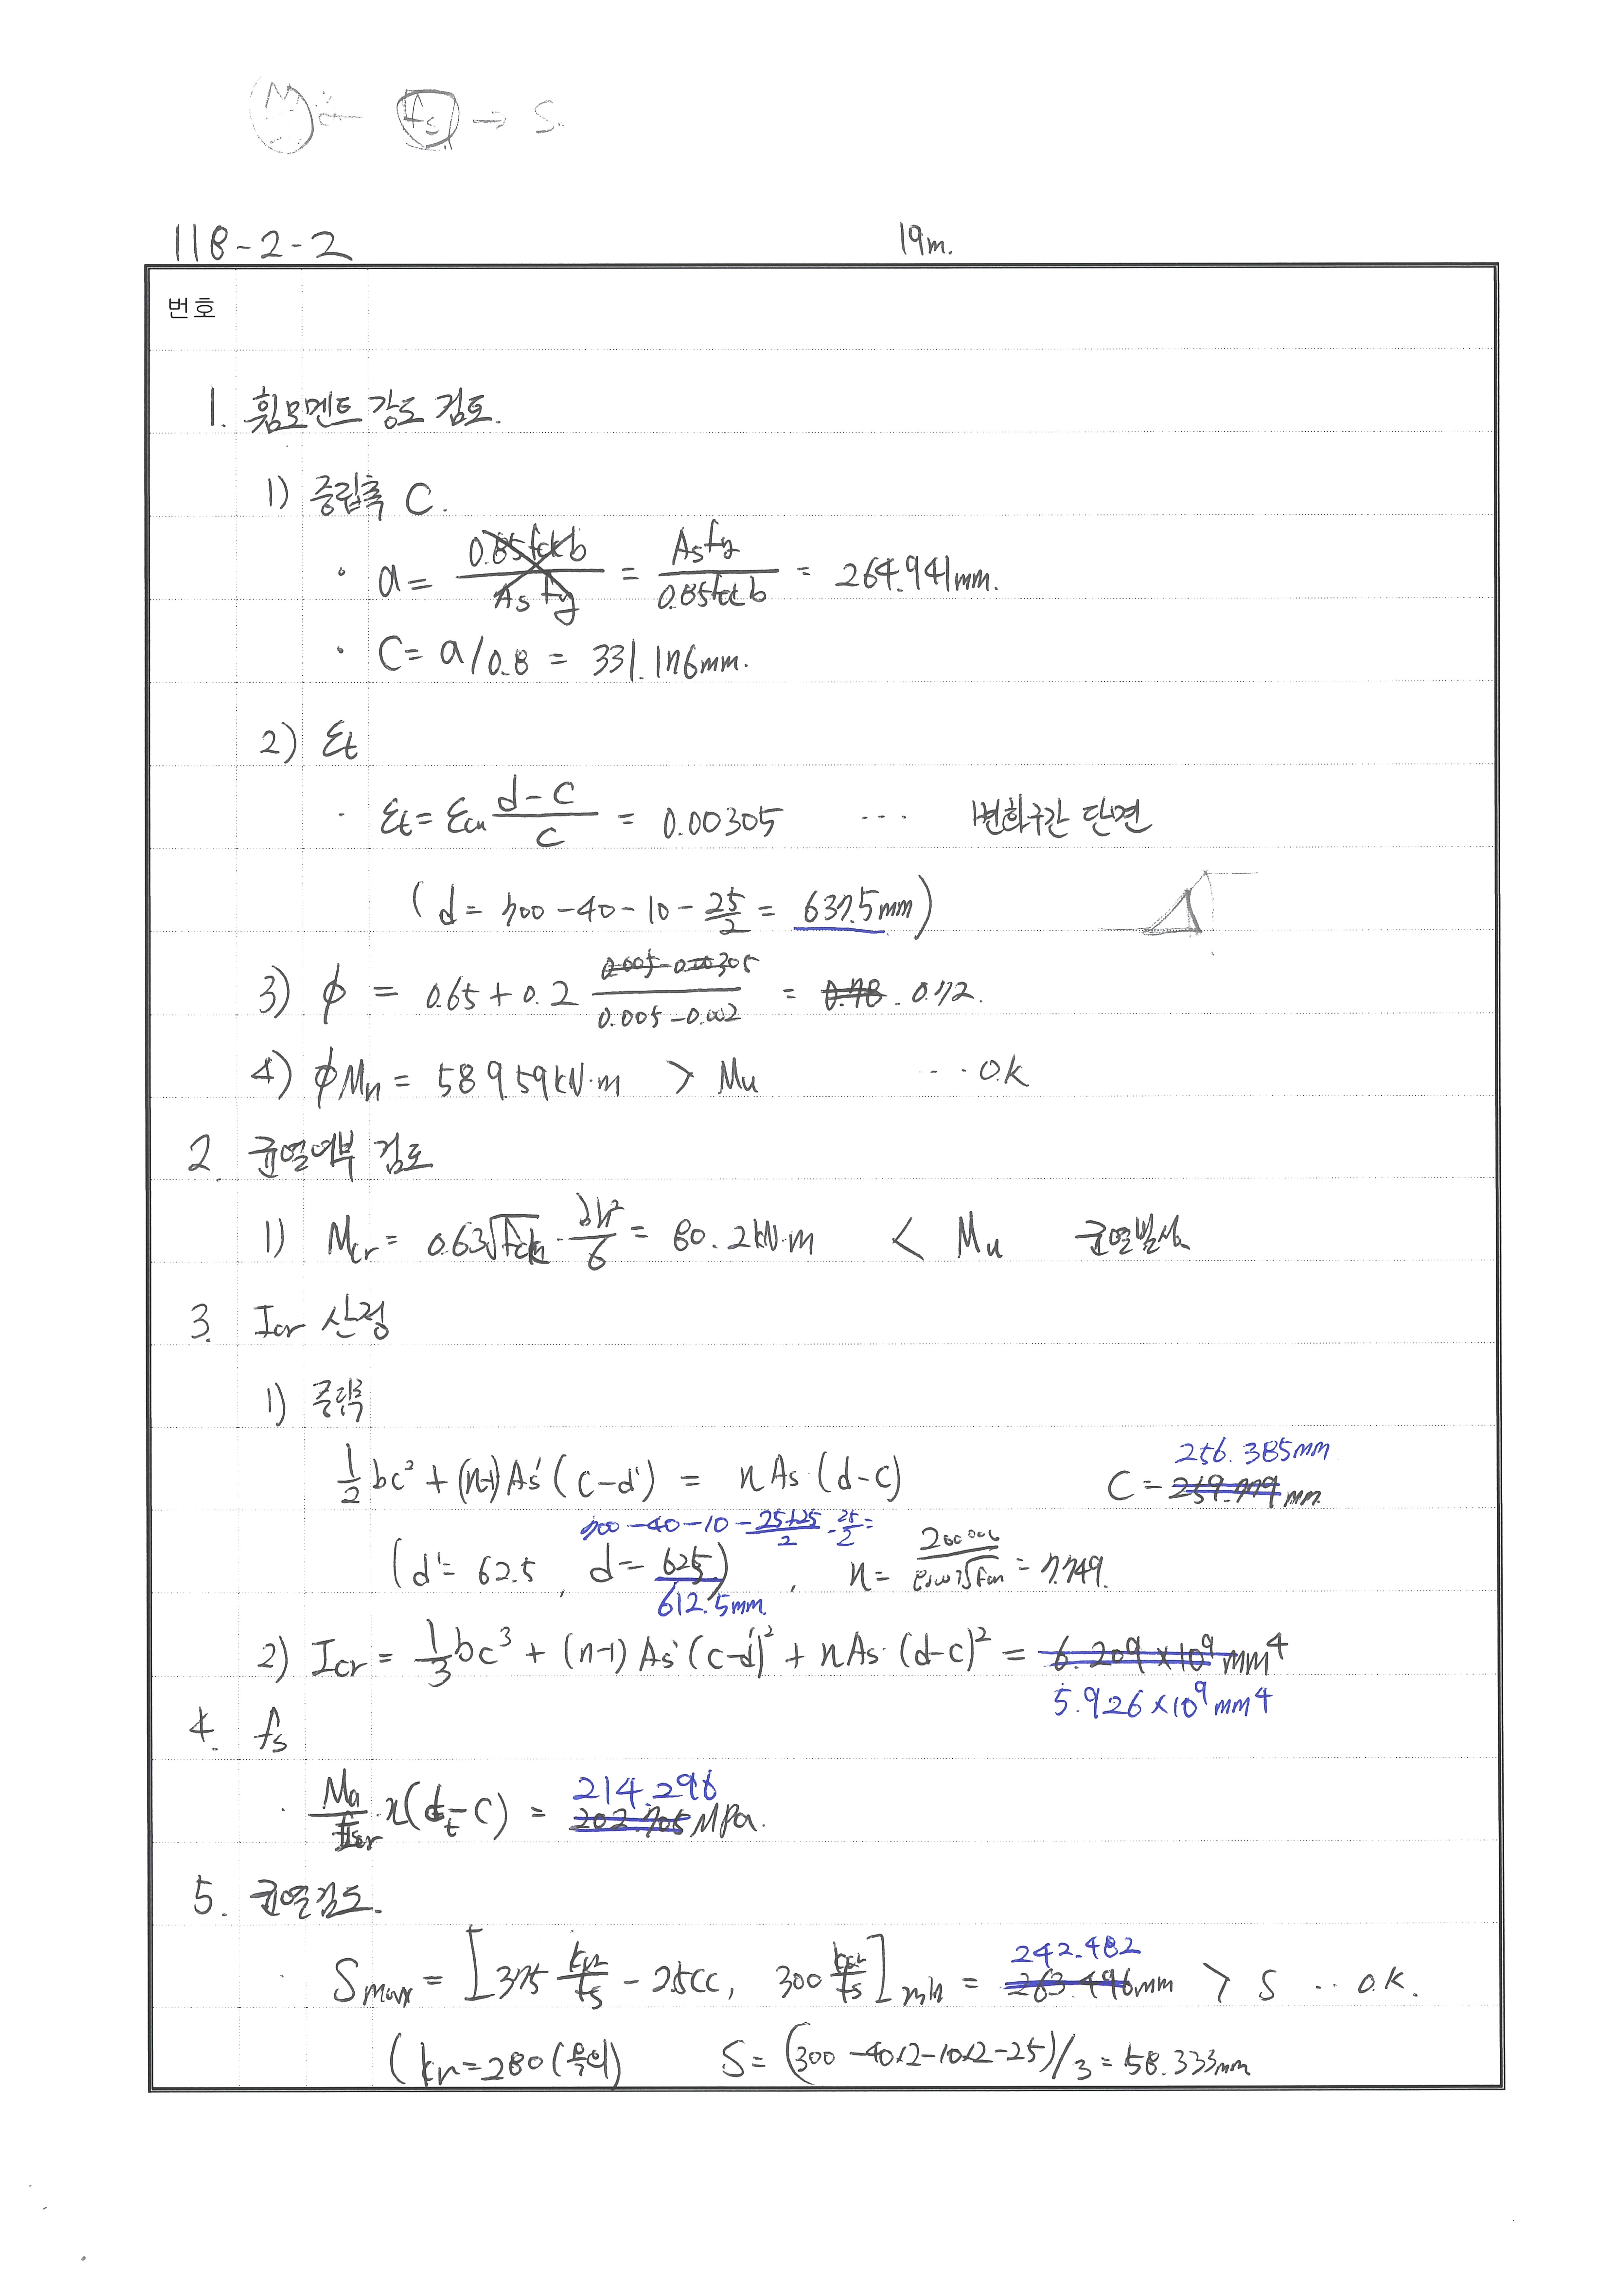 M ← fs → S.
118-2-2
19m.
번호
1. 휨모멘트 강도 검토.
1) 중립축 C.
· a = 0.85fckb / As fy = Asfy / 0.85fck b = 264.941mm.
· C = a/0.8 = 331.176mm.
2) εt
· εt = εcu (d-c)/c = 0.00305 ... 변화구간 단면
(d = 700-40-10-25/2 = 637.5mm)
3) φ = 0.65+0.2 (0.005-0.00305)/(0.005-0.002) = 0.78. 0.72.
4) φMn = 589.59kN·m > Mu ... O.K
2. 균열여부 검토
1) Mcr = 0.63√fck · bh²/6 = 80.2kN·m < Mu 균열발생.
3. Icr 산정
1) 중립축
256.385mm
1/2 bc² + (n-1)As'(c-d') = nAs(d-c) C = 259.779mm
700-40-10-(25+25)/2-25/2=
(d'= 62.5, d= 625), n= 200000 / 8500∛fcu = 7.749.
612.5mm.
2) Icr = 1/3 bc³ + (n-1)As'(c-d')² + nAs·(d-c)² = 6.209×10⁹mm⁴
5.926×10⁹mm⁴
4. fs
214.296
· Ma/Icr n(dt-c) = 202.705MPa.
5. 균열검토.
242.482
· Smax = [375 kcr/fs - 2.5Cc, 300 kcr/fs]min = 263.496mm > S ... O.K.
(kcr=280(옥외) S = (300-40×2-10×2-25)/3 = 58.333mm